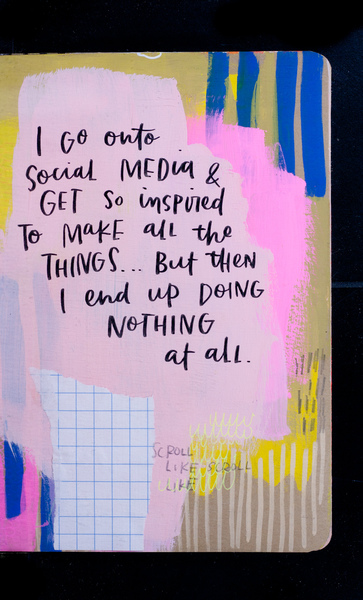 I GO onto
Social MEDia &
GET So inspired
To MAKE all the
THINGS... But then
I end up DOING
NOTHING
at all.
SCROLL
LIKE SCROLL
LIKE